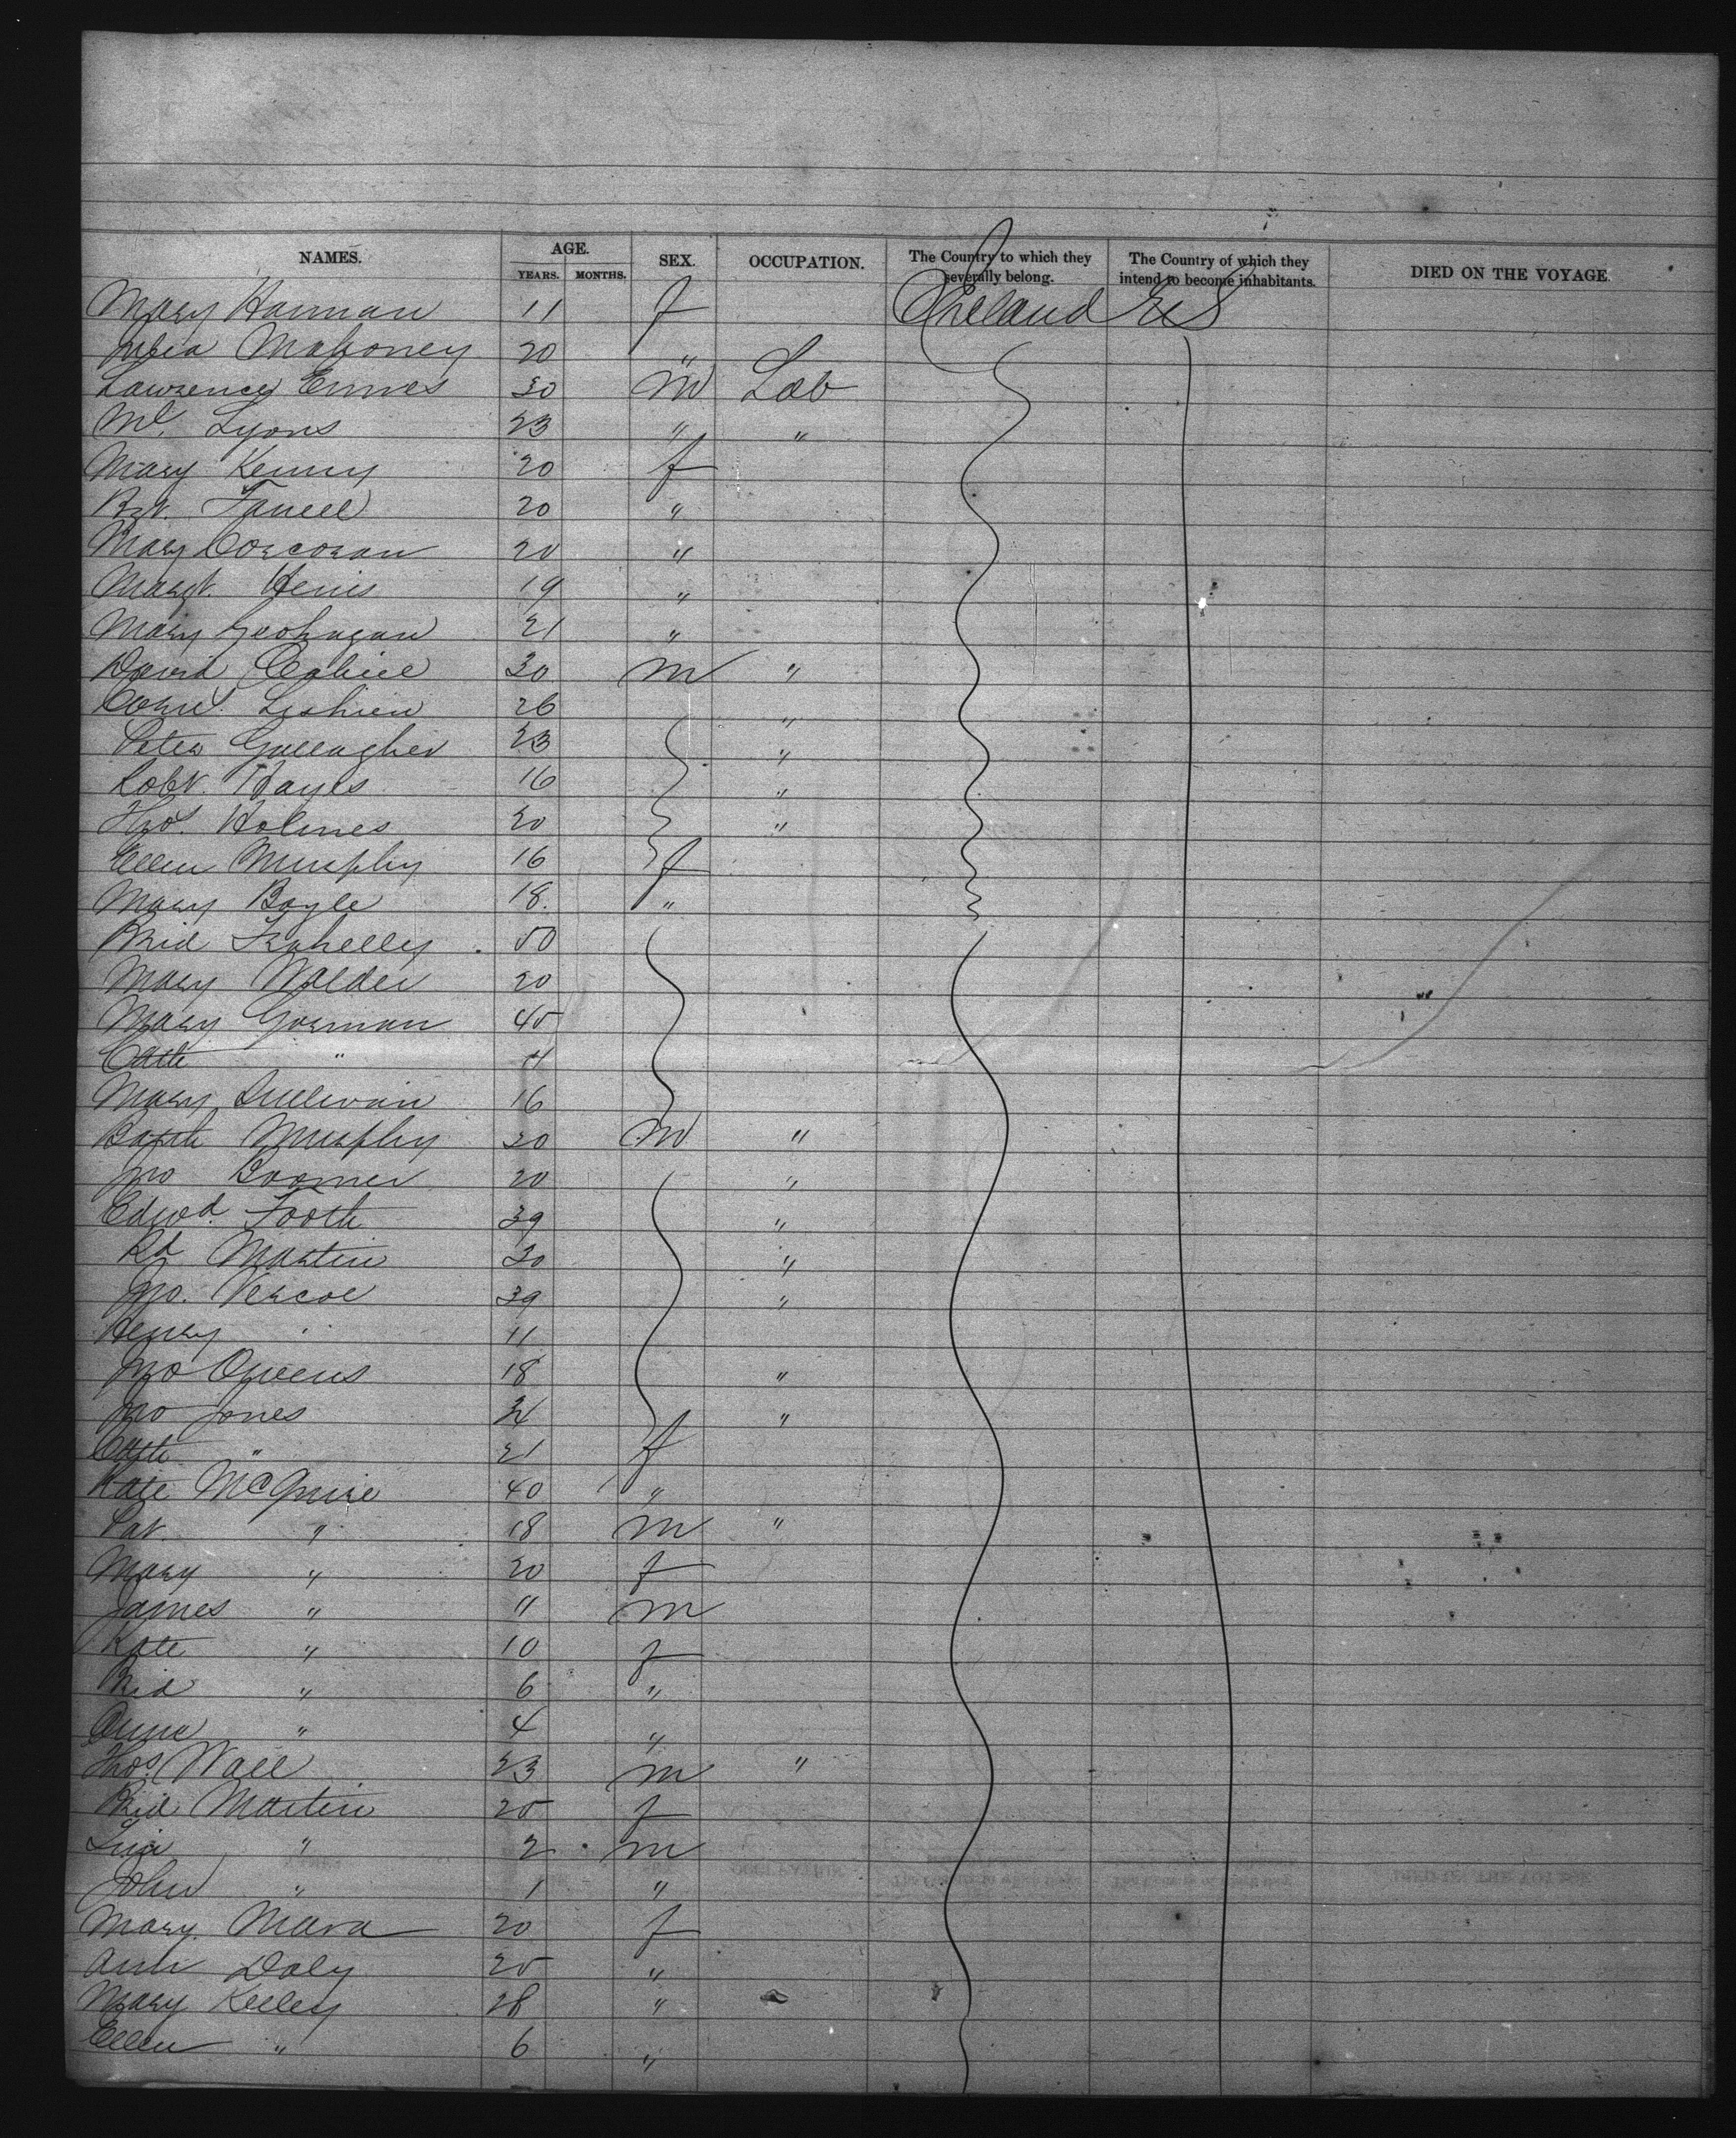 NAMES. AGE. SEX. OCCUPATION. The Country to which they severally belong. The Country of which they intend to become inhabitants. DIED ON THE VOYAGE.
YEARS. MONTHS.
Mary Hannan 11 f Ireland U S
Julia Mahoney 20 "
Lawrence 30 M Lab
Ml. Lyons 23 " "
Mary Kenny 20 f
Farrell 20 "
Mary Corcoran 20 "
Margt. 19 "
Mary Geohagan 21 "
David Cahill 30 M "
Corns. 26 "
Peter Gallagher 23 "
Robt. Hayes 16 "
Thos. Holmes 20 "
Ellen Murphy 16 f
Mary Boyle 18. "
Brid 50
Mary 20
Mary Gorman 45
Cath " 11
Mary Sullivan 16
Barth Murphy 30 M "
Jno 20 "
Edwd. 39 "
Rd Martin 30 "
Jno. Vercoe 39 "
Henry " 11
Jno Owens 18 "
Jno Jones 24 "
Cath " 21 f
Kate McGuire 40 "
Pat. " 18 M "
Mary " 20 f
James " 11 M
Kate " 10 f
Brid " 6 "
Anna " 4 "
Thos. Wall 23 M "
Brid Martin 25 f
" 2 M
John " 1 "
Mary Mara 20 f
Ann Daly 25 "
Mary Kelley 28 "
Ellen " 6 "